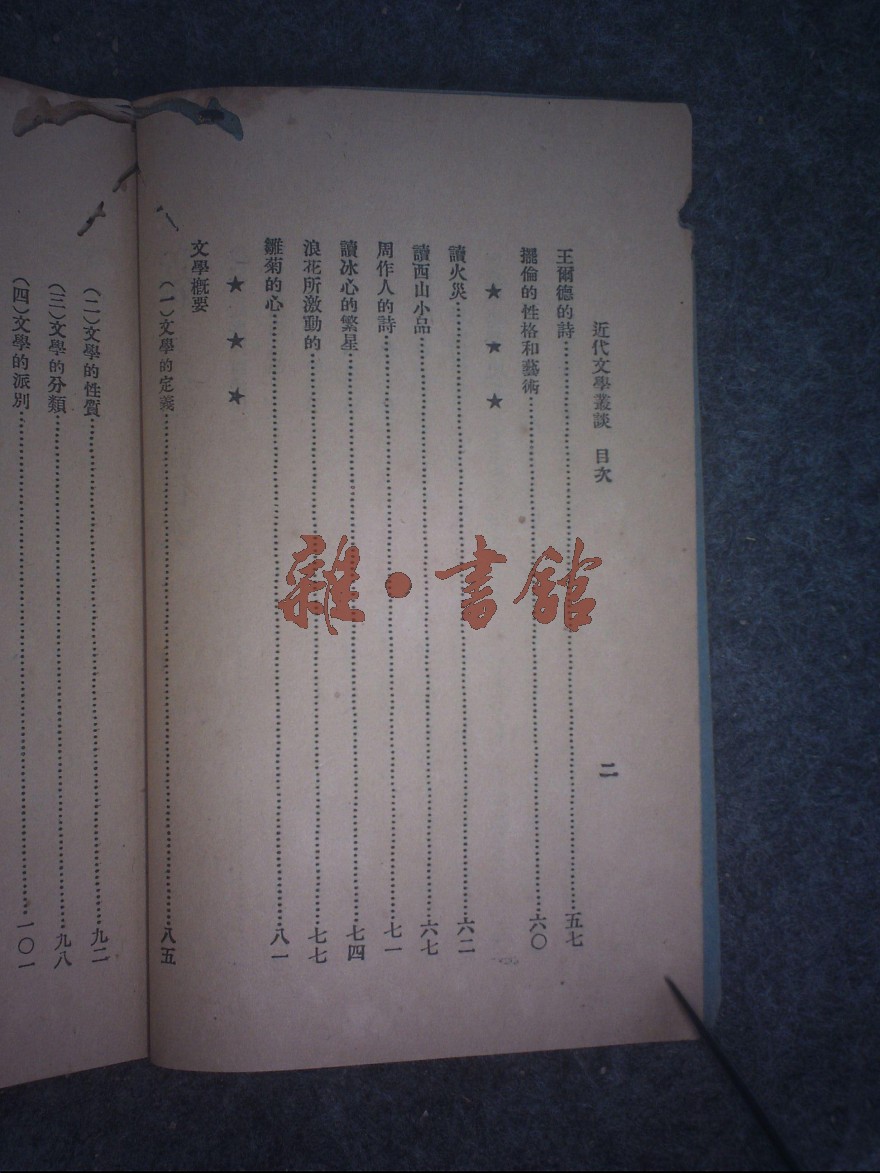 近代文學叢談 目次
二
王爾德的詩……五七
擺倫的性格和藝術……六〇
★ ★ ★
讀火災……六二
讀西山小品……六七
周作人的詩……七一
讀冰心的繁星……七四
浪花所激動的……七七
雛菊的心……八一
★ ★ ★
文學概要
(一)文學的定義……八五
(二)文學的性質……九二
(三)文學的分類……九八
(四)文學的派別……一〇一
雜·書館